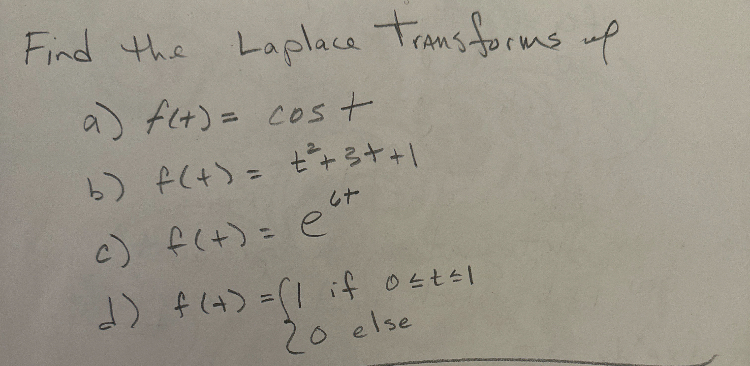 Find the Laplace Transforms of
a) f(t) = cos t
b) f(t) = t² + 3t + 1
c) f(t) = e^{6t}
d) f(t) = { 1 if 0 ≤ t ≤ 1
0 else